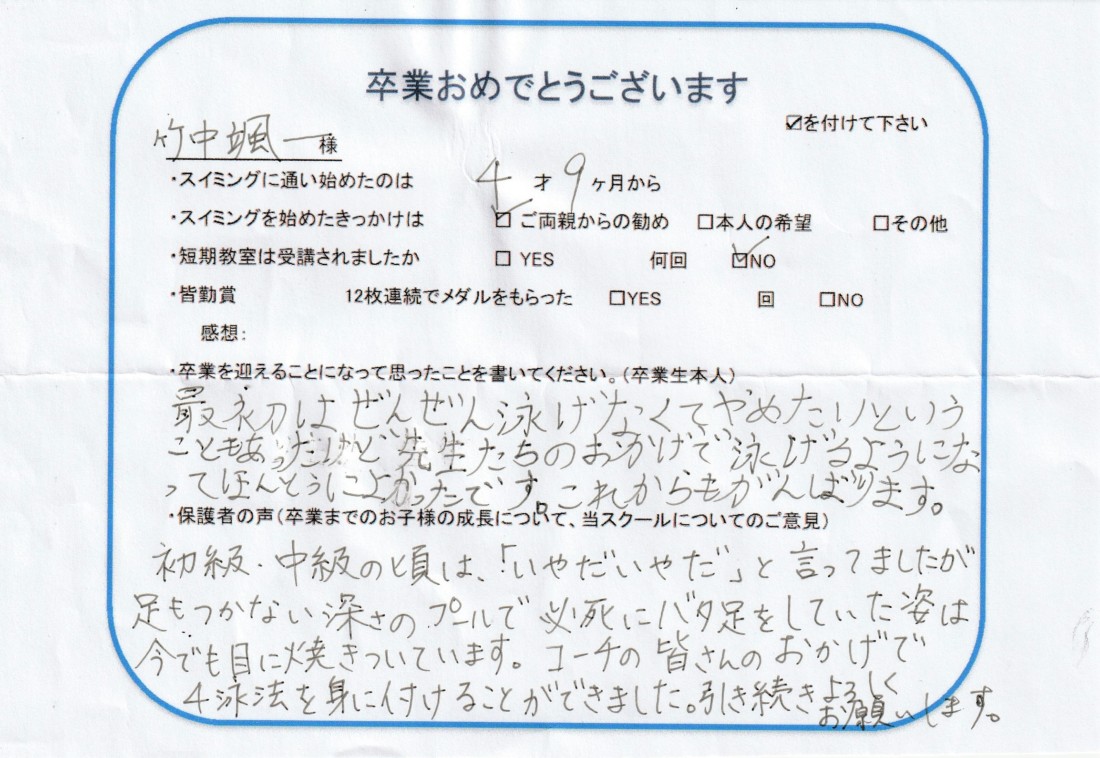 卒業おめでとうございます
☑を付けて下さい
竹中颯一様
・スイミングに通い始めたのは 4才9ヶ月から
・スイミングを始めたきっかけは ☑ご両親からの勧め □本人の希望 □その他
・短期教室は受講されましたか □YES 何回 ☑NO
・皆勤賞 12枚連続でメダルをもらった □YES 回 □NO
感想:
・卒業を迎えることになって思ったことを書いてください。(卒業生本人)
最初はぜんぜん泳げなくてやめたいという
こともあっただけど先生たちのおかげで泳げるようにな
ってほんとうによかったです。これからもがんばります。
・保護者の声(卒業までのお子様の成長について、当スクールについてのご意見)
初級・中級の頃は、「いやだいやだ」と言ってましたが
足もつかない深さのプールで必死にバタ足をしていた姿は
今でも目に焼きついています。コーチの皆さんのおかげで
4泳法を身に付けることができました。引き続きよろしく
お願いします。